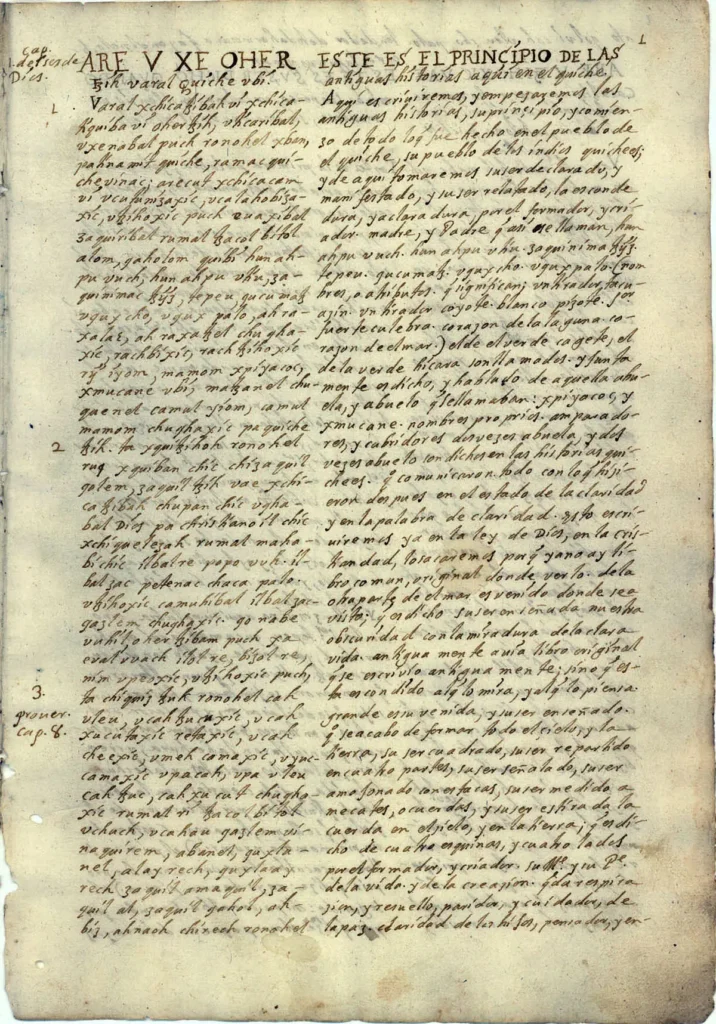 1
Cap.
1. de ser de
Dios.
ARE V XE OHER
ꜩih varal quiche vbi.
1
Varal xchicaꜩibah vi xchica-
ꜩiquiba vi oher ꜩih, vticaribal,
vxenabal puch ronohel xban,
pa tinamit quiche, ramac qui-
che vinac; arecut xchicacam
vi vcutunizaxic, vcalahobiza-
xic, vꜩihoxic puch euaxibal
zaquiribal rumal tzacol bitol
alom, qaholom quibi hun ah-
pu vuch, hun ahpu vtiu, za-
quinimac ꜩijs, tepeu, qucumatz
vqux cho, vqux palo, ah ra-
xalaq, ah raxatzel chugha-
xic, rachbixic, rachꜩihoxic
rij iyom, mamom xpiyacoc,
xmucane vbi; matzanel chu-
quenel camul yiom, camul
mamom chughaxic pa quiche
2
ꜩih. ta xquiꜩihoh ronohel
ruq xquiban chic chi zaquil
qolem, zaquil ꜩih vae xchi-
caꜩibah chupan chic vgha-
bal Dios pa christianoil chic
xchiquelezah rumal maha-
bi chic ilbalre popo vuh, il-
bal zac petenac chaca palo.
vꜩihoxic camuhibal ilbal zac-
qazlem chughaxic. qo nabe
vuhil, oher ꜩibam puch xa
eval vvach ilol re, bizol re,
nim vpeoxic, vꜩihoxic puch,
3.
prover.
Cap. 8.
ta chiquiz tzuk ronohel cah
vleu, vcah tzucuxic, vcah
xucutaxic retaxic, vcah
cheexic, vmeh camaxic, vyuc-
camaxic vpa cah, vpa vleu
cah tzuc, cah xucut chugho-
xic rumal ri tzacol bitol
vchuch, vcahau qazlem vi-
naquirem, abanel, quxla-
nel, alay rech, quxlaay
rech zaquil amaquil, za-
quil al, zaquil qahol, ah-
biz, ahnaoh chirech ronohel
ESTE ES EL PRINCÍPIO DE LAS
antiguas historias aqui en el quiche.
Aqui escriviremos, y empezaremos las
antiguas historias, su principio, y comien-
zo de todo lo que fue hecho en el pueblo de
el quiche, su pueblo de los indios quichees;
y de aqui tomaremos su ser declarado, y
manifestado, y su ser relatado, la esconde
dura, y aclaradura, por el formador, y cri-
ador madre, y Padre q asi se llaman, hun
ahpu vuch. hun ahpu vtiu. zaquinima ꜩijs.
tepeu. qucumatz. vqux cho. vqux palo. (nom
bres, o atributos. q significan; vn tirador tacu-
azin. vn tirador coyote. blanco pizote. for
fuerte culebra. corazon de la laguna. co-
razon de el mar.) el de el verde cagete, el
de la verde hicara son llamados. y junta
mente es dicho, y hablado de aquella abu-
ela, y abuelo q se llamaban: xpiyacoc, y
xmucane. nombres proprios. amparado-
res, y cubridores dos vezes abuela, y dos
vezes abuelo son dichos en las historias qui-
chees. q comunicaron todo con lo q hizi-
eron despues en el estado de la claridad
y en la palabra de claridad. Esto escri-
uiremos ya en la ley de Dios, en la cris-
tiandad, lo sacaremos porq ya no ay li-
bro comun, original donde verlo. de la
otra parte de el mar es venido donde se a
visto: y es dicho su ser enseñada nuestra
obscuridad con la miradura de la clara
vida. antigua mente auia libro original
q se escrivio antigua mente; sino q es-
ta escondido alq lo mira, y alq lo piensa
grande es su venida, y su ser enseñado.
q se acabo de formar todo el cielo, y la
tierra, su ser cuadrado, su ser repartido
en cuatro partes, su ser señalado, su ser
amojonado con estacas, su ser medido a
mecates, o cuerdas, y su ser estirada la
cuerda en el zielo, y en la tierra; q es di-
cho de cuatro esquinas, y cuatro lados
por el formador, y criador. su Me. y su Pe.
de la vida. y de la creazion. q da respira
zion, y resuello, parida, y cuidador, de
la paz. claridad de los hijos, pensador, y en-